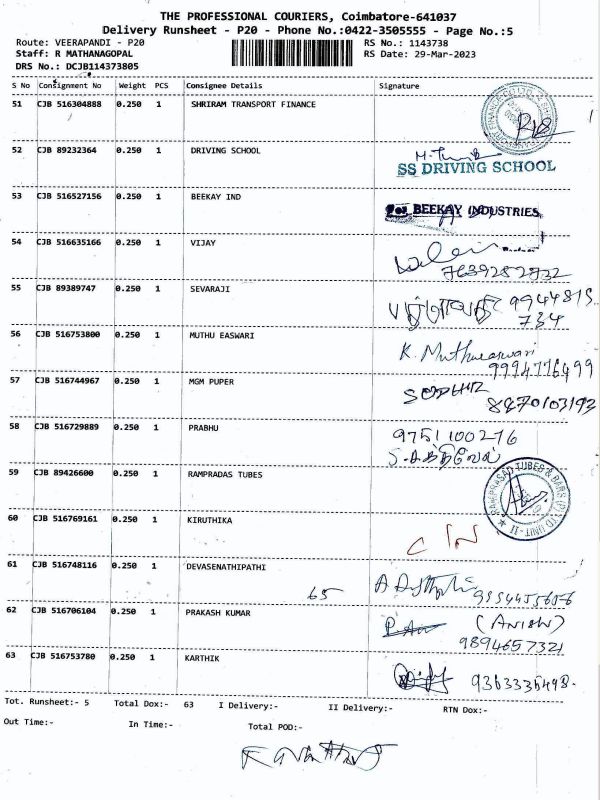 THE PROFESSIONAL COURIERS, Coimbatore-641037
Delivery Runsheet - P20 - Phone No.:0422-3505555 - Page No.:5
Route: VEERAPANDI - P20 RS No.: 1143738
Staff: R MATHANAGOPAL RS Date: 29-Mar-2023
DRS No.: DCJB114373805
S No Consignment No Weight PCS Consignee Details Signature
51 CJB 516304888 0.250 1 SHRIRAM TRANSPORT FINANCE
52 CJB 89232364 0.250 1 DRIVING SCHOOL
SS DRIVING SCHOOL
53 CJB 516527156 0.250 1 BEEKAY IND
For BEEKAY INDUSTRIES,
54 CJB 516635166 0.250 1 VIJAY
7639282732
55 CJB 89389747 0.250 1 SEVARAJI
9944815
734
56 CJB 516753800 0.250 1 MUTHU EASWARI
K. Muthueaswari
9994776499
57 CJB 516744967 0.250 1 MGM PUPER
8870103193
58 CJB 516729889 0.250 1 PRABHU
9751100276
59 CJB 89426600 0.250 1 RAMPRADAS TUBES
RAMPRASAD TUBES & BARS (P) LTD UNIT - II
60 CJB 516769161 0.250 1 KIRUTHIKA
61 CJB 516748116 0.250 1 DEVASENATHIPATHI
65
62 CJB 516706104 0.250 1 PRAKASH KUMAR
(ANISH)
9894657321
63 CJB 516753780 0.250 1 KARTHIK
9363335498
Tot. Runsheet:- 5 Total Dox:- 63 I Delivery:- II Delivery:- RTN Dox:-
Out Time:- In Time:- Total POD:-